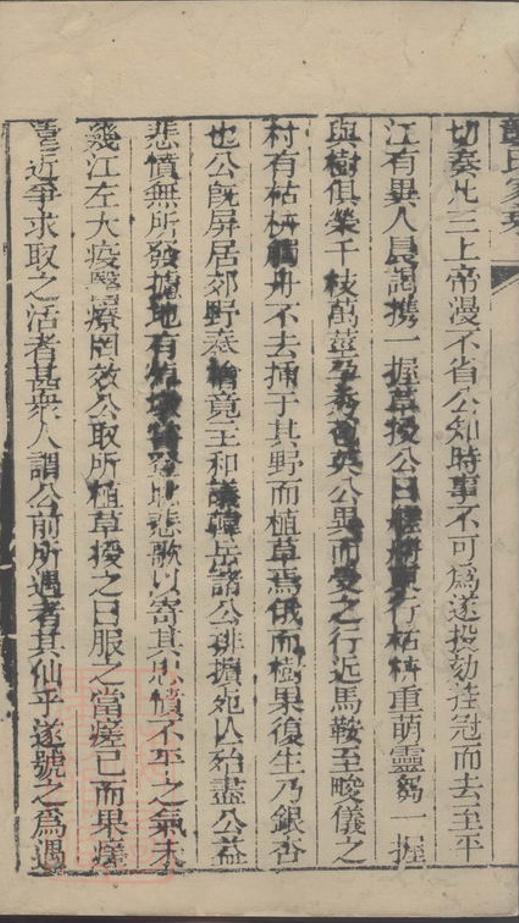 氏家乘
切奏凡三上帝漫不省公知時事不可為遂投劾挂冠而去至平
江有異人晨謁携一握草授公曰 行枯枿重萌靈芻一握
與樹俱榮千枝萬莖 英公異而受之行近馬鞍至畯儀之
村有枯枿觸舟不去揷于其野而植草焉俄而樹果復生乃銀杏
也公旣屏居郊野秦檜竟主和議韓岳諸公排擯 殆盡公益
悲憤無所發攄地有 登 悲歌以寄其忠憤不平之氣未
幾江左大疫醫療罔效公取所植草授之曰服之當瘥已而果瘥
近爭求取之活者甚衆人謂公前所遇者其仙乎遂號之為遇